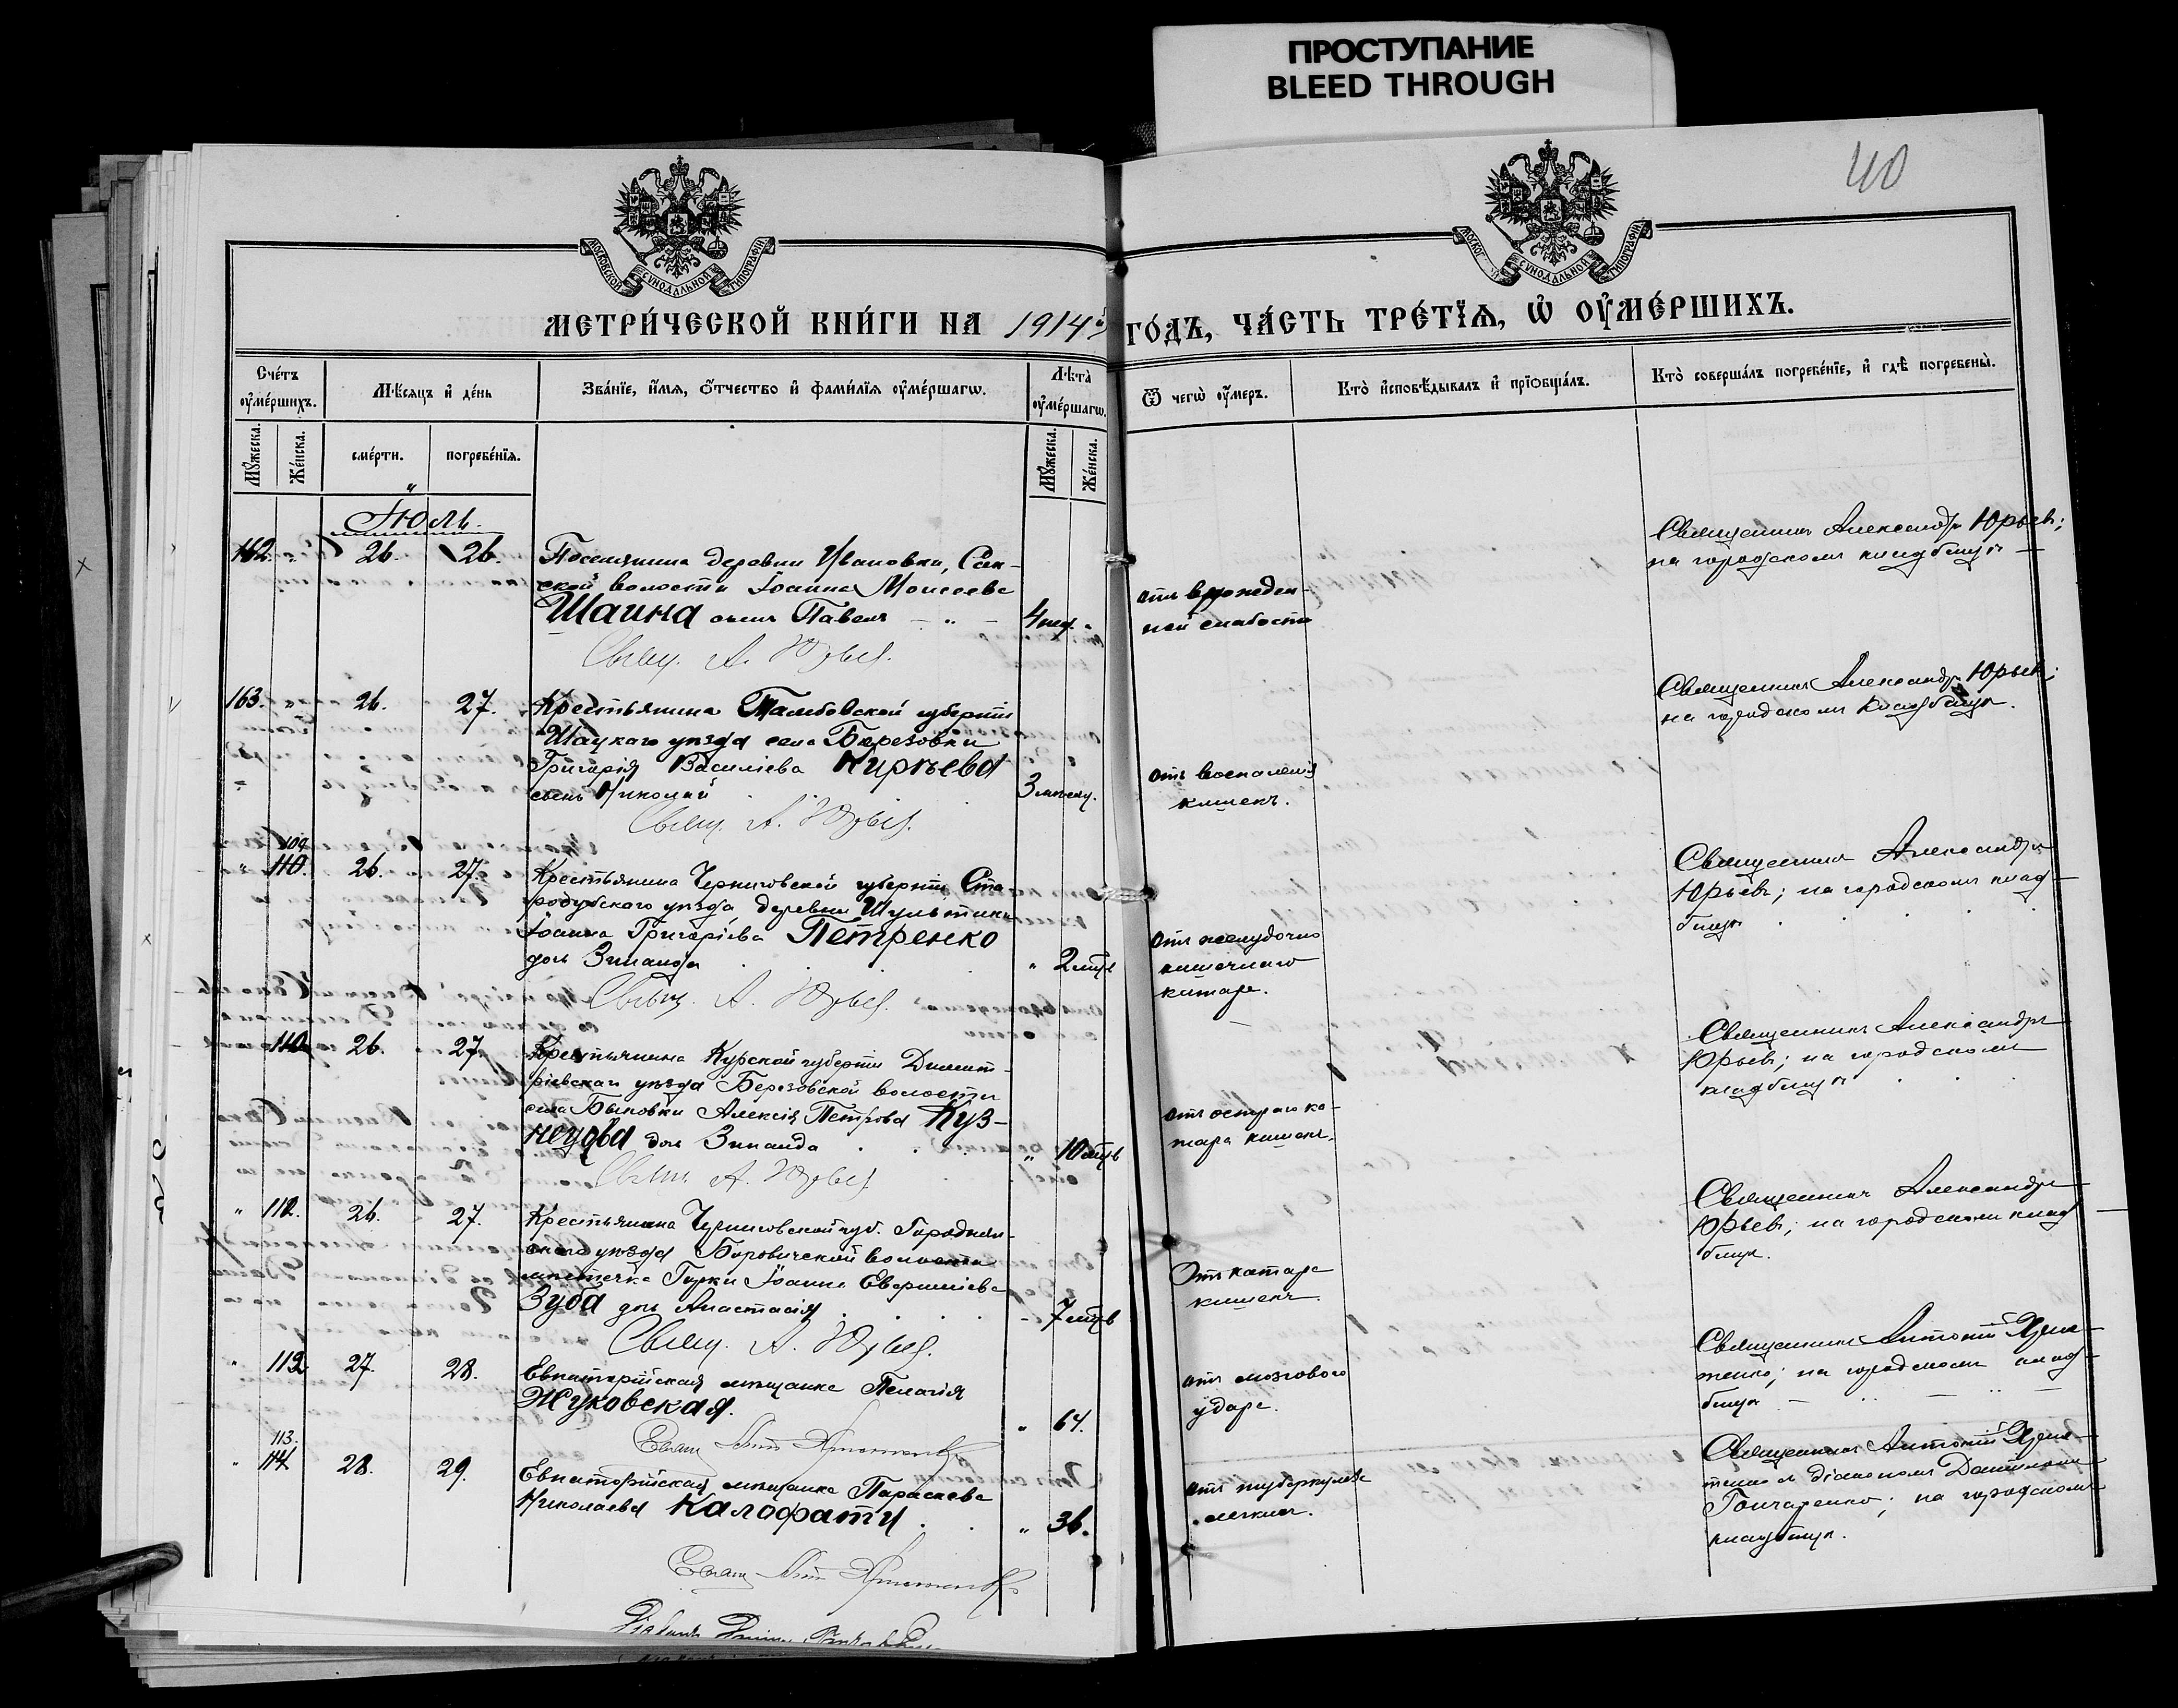 ПРОСТУПАНИЕ
BLEED THROUGH
40
МОСКОВСКОЙ СѴНОДАЛЬНОЙ ТИПОГРАФІИ
СѴНОДАЛЬНОЙ ТИПОГРАФІИ
МЕТРИ́ЧЕСКОЙ КНИ́ГИ НА 1914й ГО́ДЪ, ЧА́СТЬ ТРЕ́ТЇѦ, Ѡ҆ ОУ҆МЕ́РШИХЪ.
Сче́тъ оу҆ме́ршихъ.
Мѣ́сяцъ и҆ де́нь
Зва́нїе, и҆́мя, ѻ҆́тчество и҆ фами́лїя оу҆ме́ршагѡ.
Лѣта̀ оу҆ме́ршагѡ.
Ѿ чегѡ̀ оу҆́меръ.
Кто̀ и҆сповѣ́дывалъ и҆ прїѡбща́лъ.
Кто̀ соверша́лъ погребе́нїе, и҆ гдѣ̀ погребены̀.
Мꙋ́жеска.
Же́нска.
сме́рти.
погребе́нїя.
Мꙋ́жеска.
Же́нска.
Іюль.
162. " 26. 26. Поселянина деревни Ивановки, Сак-
ской волости Іоанна Моисеева
Шаина сынъ Павелъ — " — 4 "
Свящ. А. Юрьев.
отъ врожден-
ной слабости
Священникъ Александръ Юрьевъ;
на городскомъ кладбищѣ —
163. 26. 27. Крестьянина Тамбовской губерніи
Шацкаго уѣзда села Березовки
Григорія Василіева Киреева
сынъ Николай 3 мѣсяц.
Свящ. А. Юрьев.
отъ воспаленія
кишекъ.
Священникъ Александръ Юрьевъ;
на городскомъ кладбищѣ.
109
" 110. 26. 27. Крестьянина Черниговской губерніи Ста-
родубскаго уѣзда деревни
Іоанна Григоріева Петренко
дочь Зинаида " 2 мѣс
Свящ. А. Юрьев.
отъ желудочно
кишечнаго
катара.
Священникъ Александръ
Юрьевъ; на городскомъ клад-
бищѣ
110 26. 27. Крестьянина Курской губерніи Димит-
ріевскаго уѣзда Березовской волости
села Быковки Алексія Петрова Куз-
нецова дочь Зинаида " 10 мѣс
Свящ. А. Юрьев.
отъ остраго ка-
тара кишекъ.
Священникъ Александръ
Юрьевъ; на городскомъ
кладбищѣ
" 112. 26. 27. Крестьянина Черниговской губ. Городнян-
скаго уѣзда волости
мѣстечка Іоанна
Зуба дочь Анастасія - 7 мѣс
Свящ. А. Юрьев.
Отъ катара
кишекъ.
Священникъ Александръ
Юрьевъ; на городскомъ клад
бищѣ.
" 112 27. 28. Евпаторійская мѣщанка Пелагія
Жуковская. " 64.
отъ мозгового
удара.
Священникъ Антоній
на городскомъ клад-
бищѣ —
113.
" 114 28. 29. Евпаторійская мѣщанка Параскева
Николаева Калафати. " 36.
отъ туберкулеза
легкихъ.
Священникъ Антоній
съ діакономъ
Гончаренко; на городскомъ
кладбищѣ.